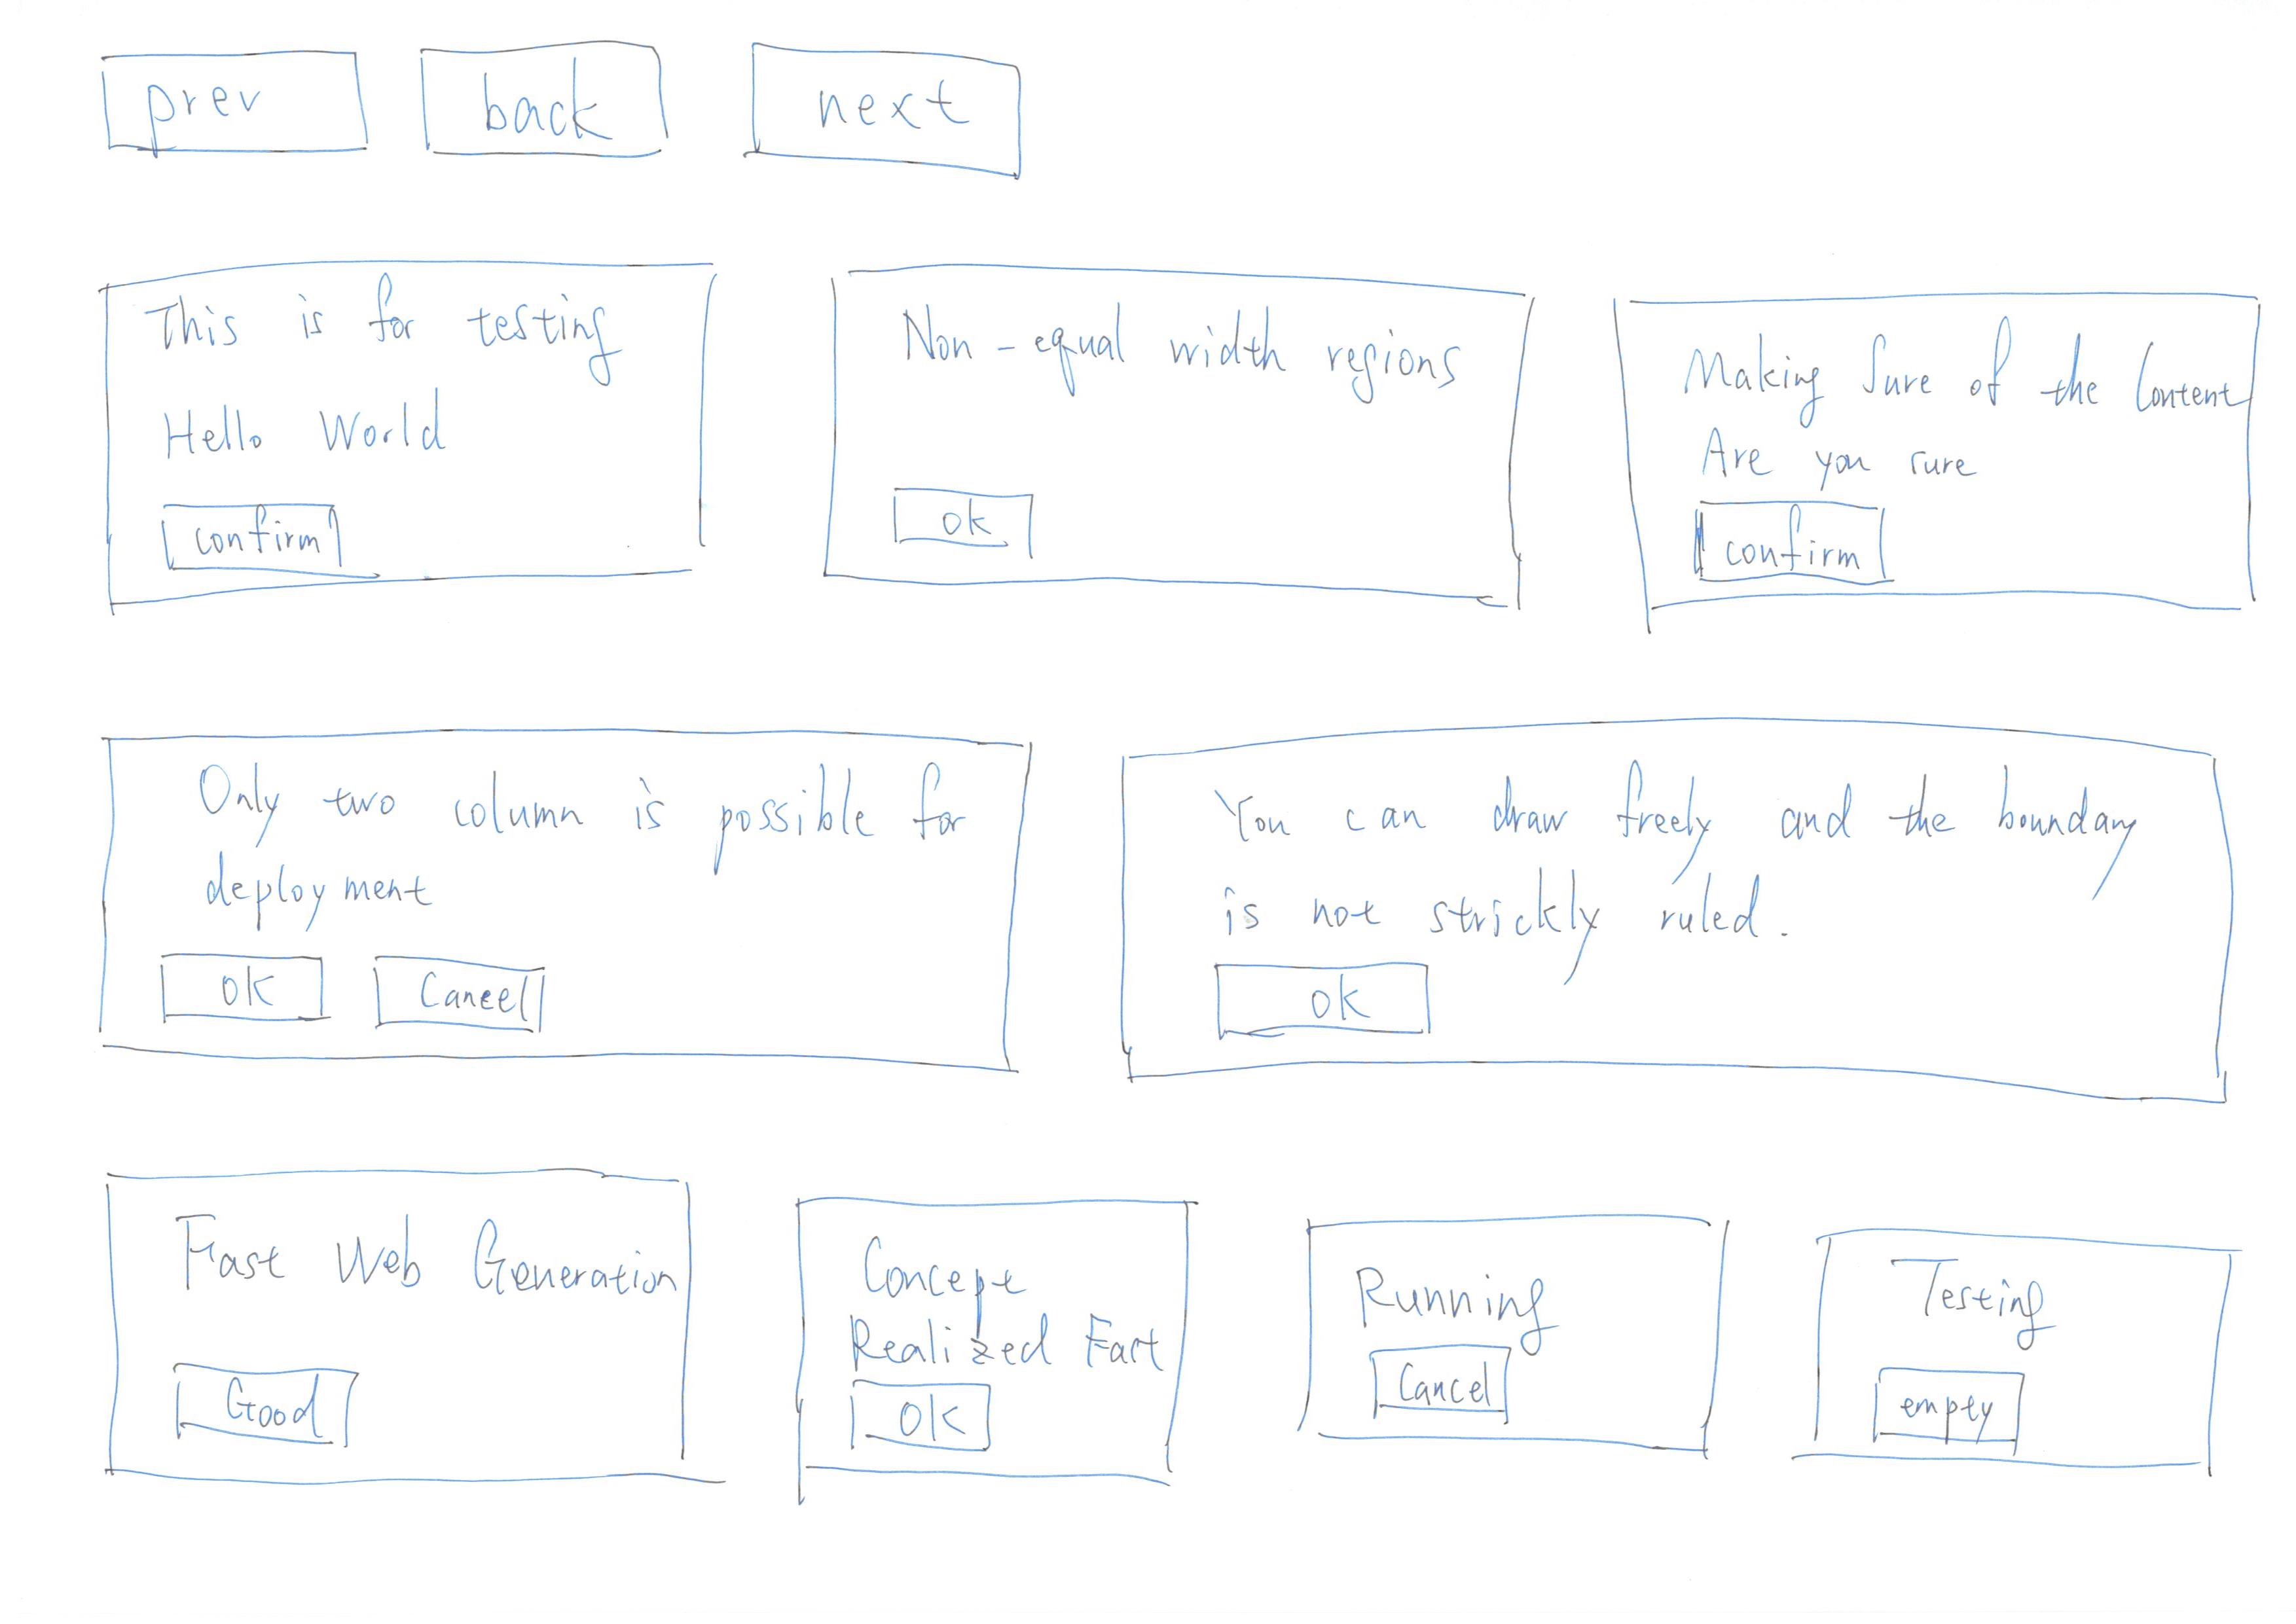 prev
back
next
This is for testing
Hello World
confirm
Non-equal width regions
ok
Making Sure of the Content
Are you sure
confirm
Only two column is possible for
deployment
OK
Cancel
You can draw freely and the boundary
is not strickly ruled.
OK
Fast Web Generation
Good
Concept
Realized Fast
OK
Running
Cancel
Testing
empty